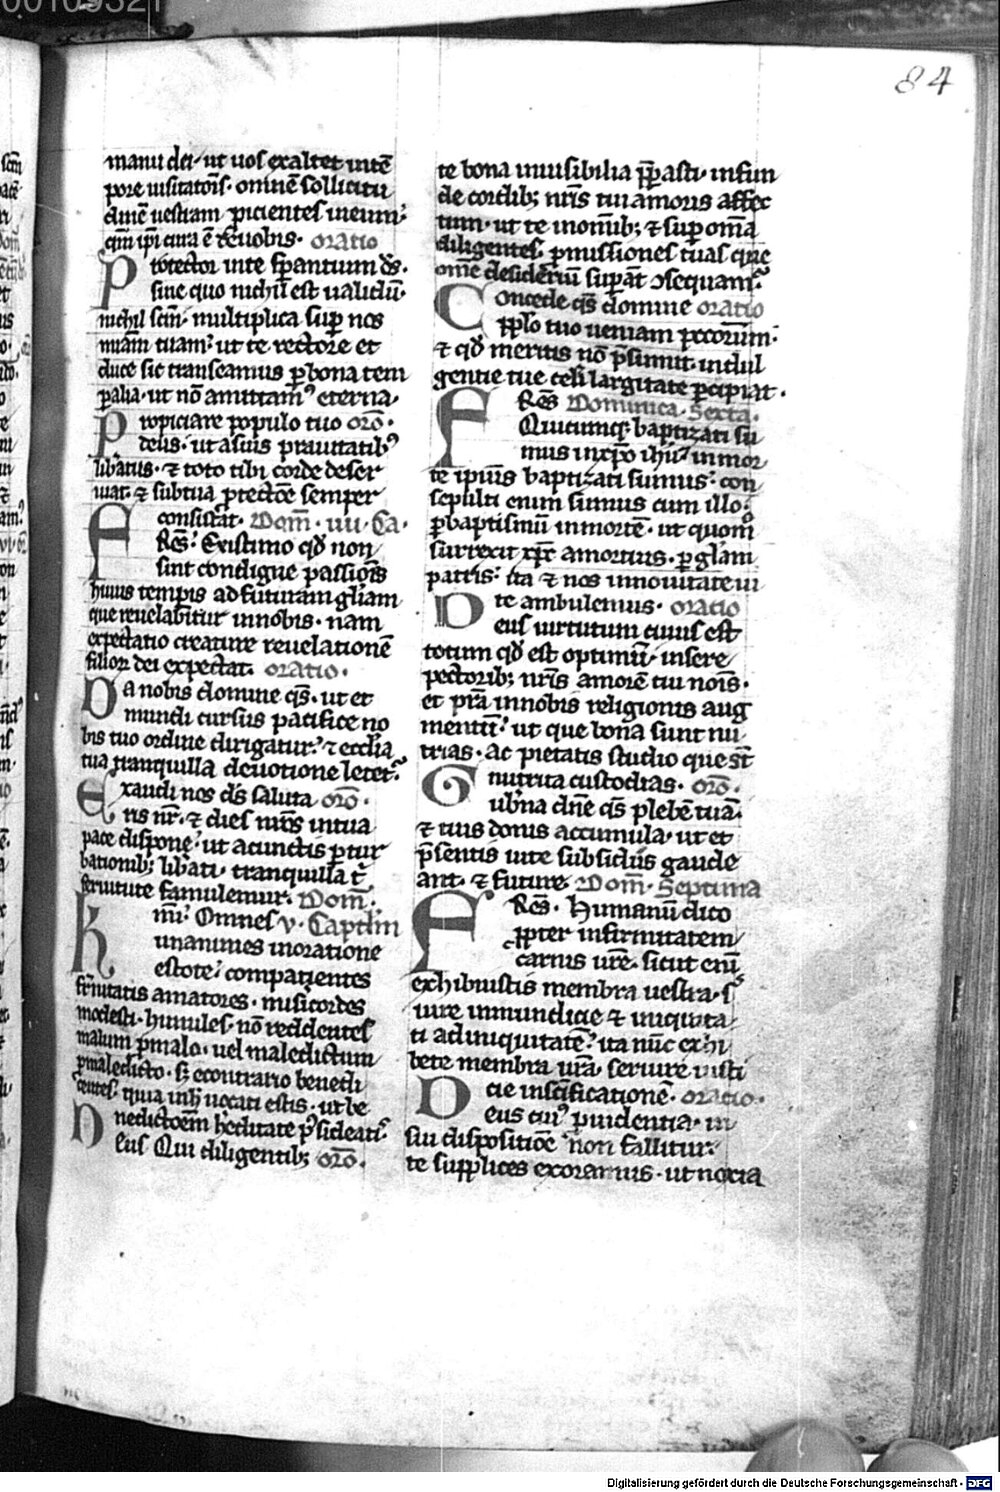 84
manu dei· ut uos exaltet intē
pore uisitatoīs· omnē sollicitu
dinē uestram ꝓicientes in eum·
qm̄ ip̄i cura ē de uobis· oratio
Protector in te sꝑantium ds̄·
sine quo nichil est ualidū·
nichil scm̄· multiplica suꝑ nos
miam̄ tuam· ut te rectore et
duce sic transeamus ꝑ bona tem
ꝑalia· ut nō amittam᷒ eterna·
Propiciare populo tuo oro᷒·
deus· ut a suis prauitatib᷒
lib̄atus· ⁊ toto tibi corde deser
uiat· ⁊ sub tua ꝓtectōe semper
consistat· Dom̄· iiii· Ca·
FRēs· Existimo qd̄ non
sint condigne passiōis
huius temꝑis ad futuram gl̄iam
que reuelabitur in nobis· nam
expectatio creature reuelationē
filior dei expectat· oratio·
Da nobis domine qs̄· ut et
mundi cursus pacifice no
bis tuo ordine dirigatur· ⁊ eccl̄ia
tua tranquilla deuotione letet᷒·
Exaudi nos ds̄ saluta oro᷒·
ris nr̄· ⁊ dies nr̄os in tua
pace dispone· ut a cunctis ꝑtur
bationib; lib̄ati· tranquilla t̄
seruitute famulemur· Dom̄·
mi· Omnes v· Capl̄m
K unanimes in oratione
estote· compatientes
fr̄nitatis amatores· mis̄icordes
modesti· humiles· nō reddentes
malum ꝓ malo· uel maledictum
ꝓ maledicto· s; econtrario benedi
centes· quia in h̄ uocati estis· ut be
nedictōem h̄editate possideatis·
Deus Qui diligentib; oro᷒·
te bona inuisibilia p̄parasti· infun
de cordib; nr̄is tui amoris affec
tum· ut te in om̄ib; ⁊ suꝑ om̄a
diligentes· ꝓmissiones tuas que
om̄e desideriū suꝑant ↄsequam᷒·
Concede qs̄ domine oratio
pp̄lo tuo ueniam peccorum̄·
⁊ qd̄ meritis nō p̄sumit· indul
gentie tue celi largitate ꝑcipiat·
FRēs Dominica· Sexta·
Quicumq; baptizati su
mus in xp̄o ih̄u· in mor
te ipius baptizati sumus· con
sepulti enim sumus cum illo·
ꝑ baptismū in mortē· ut quom᷒
surrexit xp̄c a mortuis· ꝑ gl̄am
patris· ita ⁊ nos in nouitate ui
te ambulemus· oratio
Deus uirtutum cuius est
totum qd̄ est optimū· insere
pectorib; nr̄is amorē tui noīs·
et pr̄a in nobis religionis aug
mentū· ut que bona sunt nu
trias· ac pietatis studio que st̄
nutrita custodias· oro᷒·
Gub̄na dn̄e qs̄ plebē tuā·
⁊ tuis donis accumula· ut et
p̄sentis uite subsidiis gaude
ant· ⁊ future· Dom̄· Septima
FRēs· Humanū dico
ꝓpter infirmitatem
carnis ur̄e· sicut enī
exhibuistis membra uestra· s᷒
uire inmundicie ⁊ iniquita
ti ad iniquitatē· ita nūc exhi
bete membra ur̄a· seruire iusti
cie in sc̄ificationē· oratio·
Deus cui᷒ ꝓuidentia· in
sui dispositiōe non fallitur·
te supplices exoramus· ut noxia
Digitalisierung gefördert durch die Deutsche Forschungsgemeinschaft - DFG